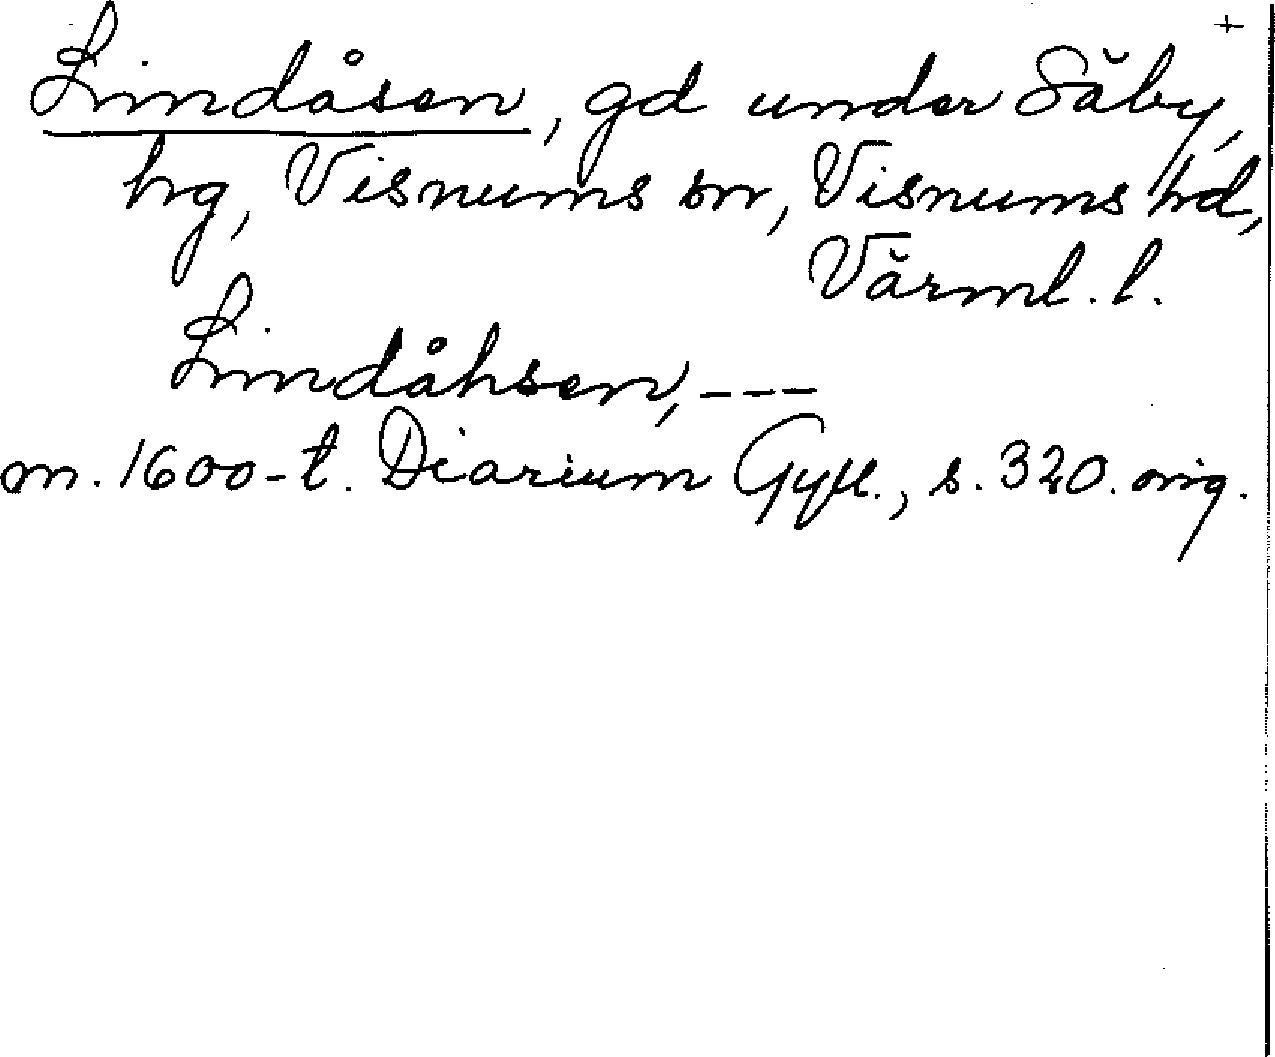 +
Lindåsen, gd under Säby,
hg, Visnums sn, Visnums hd,
Värml. l.
Lindåhsen, ---
m. 1600-t. Diarium Gyll., s. 320. orig.